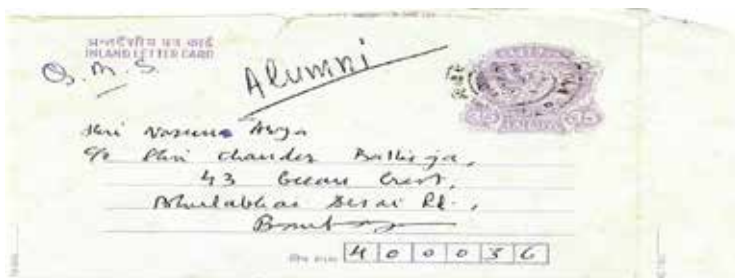 अन्तर्देशीय पत्र कार्ड
INLAND LETTER CARD
Alumni
Shri Arya
c/o Shri Chander
43 Ocean Crest,
Bhulabhai Desai Rd.,
Bombay
400036